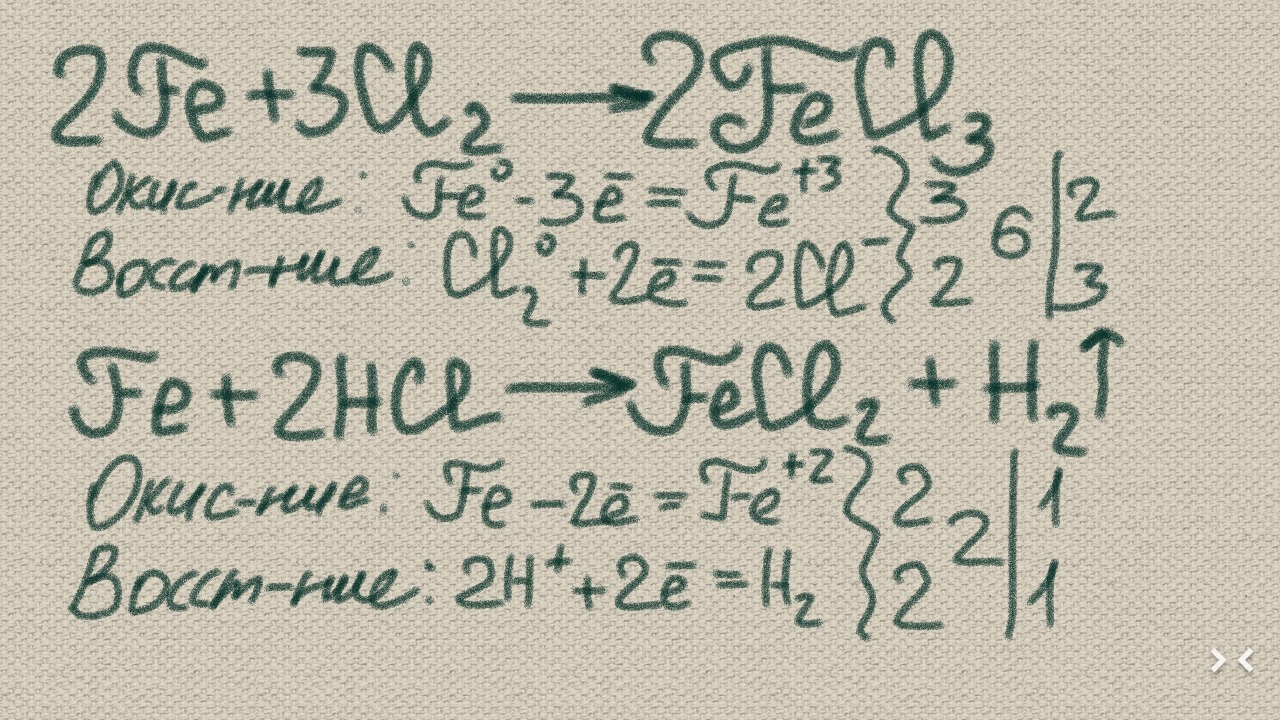 2Fe + 3Cl₂ → 2FeCl₃
Окис-ние: Fe⁰ - 3ē = Fe⁺³ } 3 6 | 2
Восст-ние: Cl₂⁰ + 2ē = 2Cl⁻ } 2 | 3
Fe + 2HCl → FeCl₂ + H₂↑
Окис-ние: Fe - 2ē = Fe⁺² } 2 2 | 1
Восст-ние: 2H⁺ + 2ē = H₂ } 2 | 1